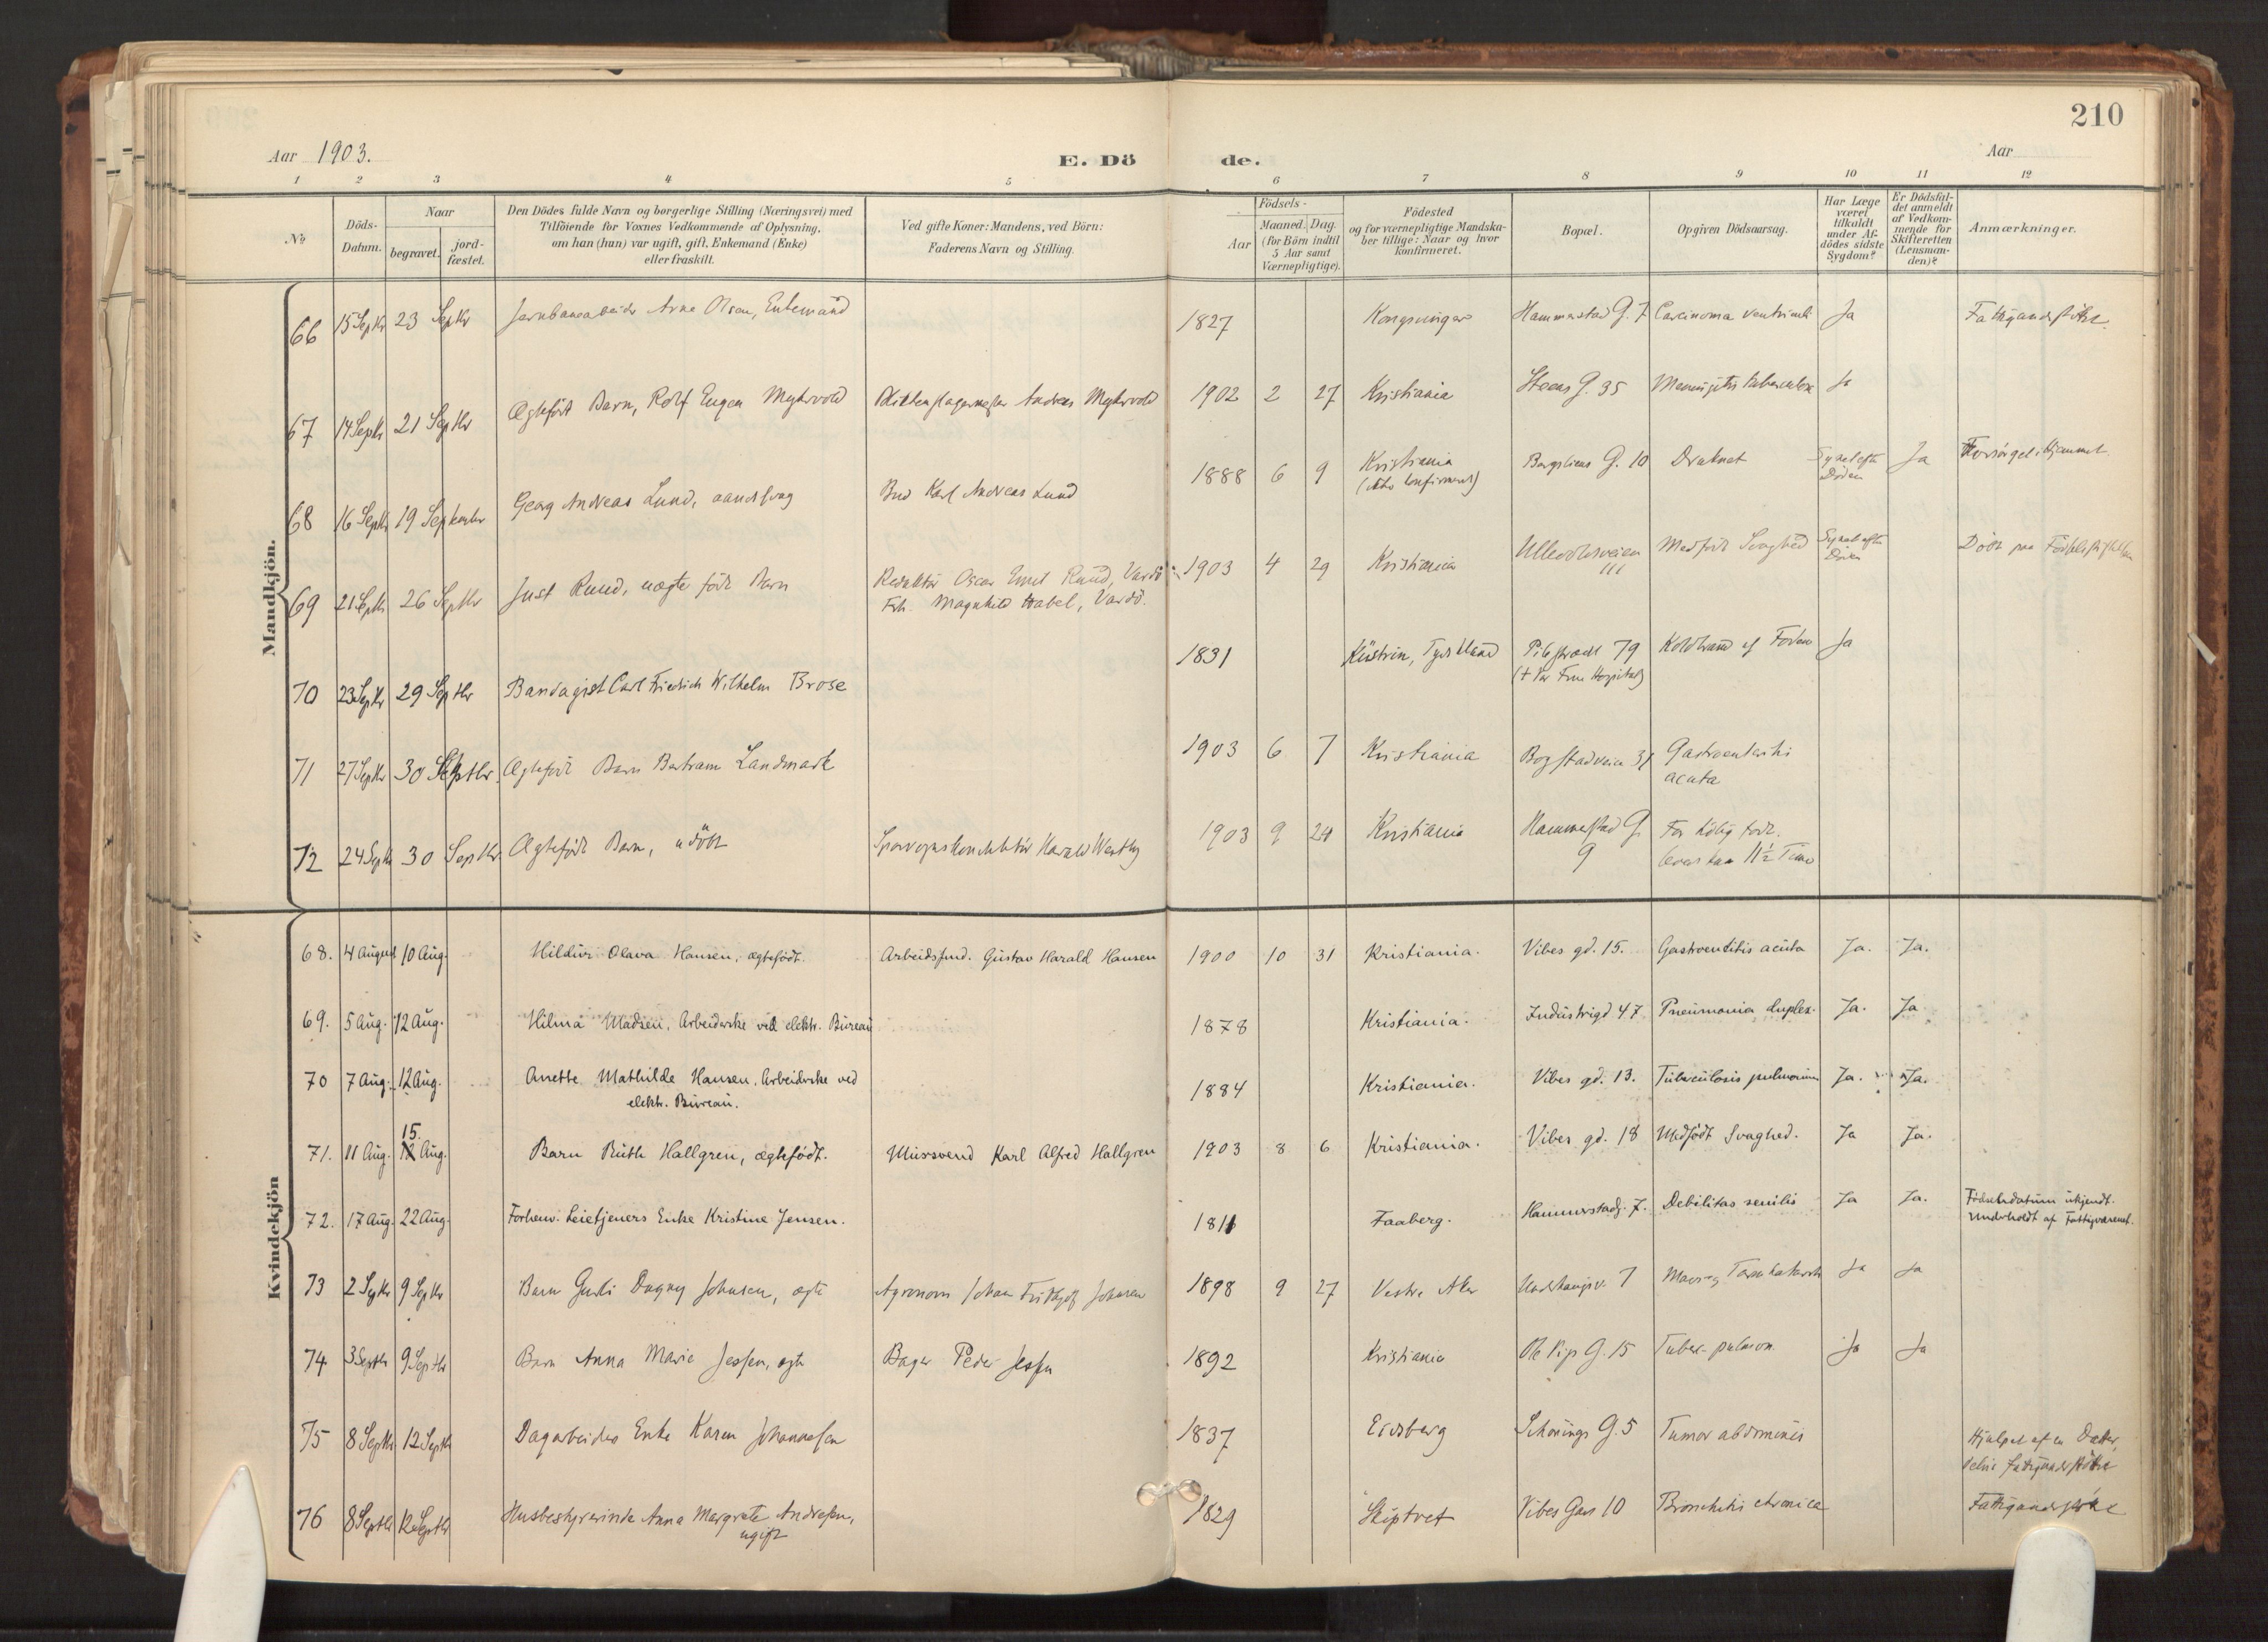 210
Aar 1903.
E. Dö de.
Aar
1 2 3 4 5 6 7 8 9 10 11 12
No
Döds-Datum.
Naar
begravet.
jord-fæstet.
Den Dödes fulde Navn og borgerlige Stilling (Næringsvei) med
Tilföiende for Voxnes Vedkommende af Oplysning,
om han (hun) var ugift, gift, Enkemand (Enke)
eller fraskilt.
Ved gifte Koner: Mandens, ved Börn:
Faderens Navn og Stilling.
Födsels-
Aar
Maaned. Dag.
(for Börn indtil
5 Aar samt
Værnepligtige).
Födested
og for værnepligtige Mandska-
ber tillige: Naar og hvor
konfirmeret.
Bopæl.
Opgiven Dödsaarsag.
Har Læge
været
tilkaldt
under Af-
dödes sidste
Sygdom?
Er Dödsfal-
det anmeldt
af Vedkom-
mende for
Skifteretten
(Lensman-
den)?
Anmærkninger.
Mandkjön.
66 15 Septbr 23 Septbr Jernbanearbeider Arne Olsen, Enkemand 1827 Kongsvinger Hammerstad G. 7 Carcinoma ventriculi Ja Fattigunderstöttet.
67 14 Septbr 21 Septbr Ægtefödt Barn, Rolf Eugen Myhrvold Blikkenslagermester Andreas Myhrvold 1902 2 27 Kristiania Steens G. 35 Meningitis tuberculosa Ja
68 16 Septbr 19 September Georg Andreas Lund, aandssvag Bud Karl Andreas Lund 1888 6 9 Kristiania
(ikke konfirmeret) Bergsliens G. 10 Druknet Synet efter
Döden Ja Forsörget i Hjemmet
69 21 Septbr 26 Septbr Just Ruud, uægte födt Barn Redaktör Oscar Emil Ruud, Vardö
Frk. Magnhild Habel, Vardö. 1903 4 29 Kristiania Ullevoldsveien
111 Medfödt Svaghed Synet efter
Döden Död paa Födselsstiftelsen
70 23 Septbr 29 Septbr Bandagist Carl Friedrich Wilhelm Brose 1831 Küstrin, Tyskland Pilestrædt 79
(+ Vor Frue Hospital) Koldbrand af Foden Ja
71 27 Septbr 30 Septbr. Ægtefödt Barn Bertram Landmark 1903 6 7 Kristiania Bogstadveien 31 Gastroenteritis
acuta
72 24 Septbr 30 Septbr Ægtefödt Barn, udöbt Sporvognskonduktör Harald Westby 1903 9 24 Kristiania Hammerstad G.
9 For tidlig födt.
levet kun 11½ Time
Kvindekjön
68. 4 August 10 Aug. Hildur Olava Hansen, ægtefödt. Arbeidsfmd. Gustav Harald Hansen 1900 10 31 Kristiania. Vibes gd. 15. Gastroentitis acuta Ja. Ja.
69. 5 Aug. 12 Aug. Hilma Madsen, Arbeiderske ved elektr. Bureau 1878 Kristiania. Industrigd 47 Pneumonia duplex. Ja. Ja.
70 7 Aug. 12 Aug. Anette Mathilde Hansen, Arbeiderske ved
elektr. Bureau. 1884 Kristiania. Vibes gd. 13. Tuberculosis pulmonum Ja. Ja.
71. 11 Aug. 15. Aug. Barn Ruth Hallgren, ægtefödt. Mursvend Karl Alfred Hallgren 1903 8 6 Kristiania. Vibes gd. 18 Medfödt Svaghed. Ja Ja.
72. 17 Aug. 22 Aug. Forhenv. Leietjeners Enke Kristine Jensen. 1811 Faaberg. Hammerstadg. 7. Debilitas senilis Ja Ja. Födselsdatum ukjendt.
Underholdt af Fattigvæsenet.
73 2 Septbr 9 Septbr Barn Dagny Johnsen, ægte Agronom Johan Fridtjof Johnsen 1898 9 27 Vestre Aker 7 Mave- og Tarmkatarrh Ja Ja
74 3 Septbr 9 Septbr Barn Anna Marie Jessen, ægte Bager Peder Jessen 1892 Kristiania Ole Vigs G. 15 Tuberc. pulmon. Ja Ja
75 8 Septbr 12 Septbr Dagarbeiders Enke Karen Johannesen 1837 Eidsberg Schönings G. 5 Tumor abdominis Hjulpet af en Datter,
delvis fattigunderstöttet
76 8 Septbr 12 Septbr Husbestyrerinde Anna Margrete Andresen,
ugift 1829 Skiptvet Vibes Gade 10 Bronchitis chronica Fattigunderstöttet